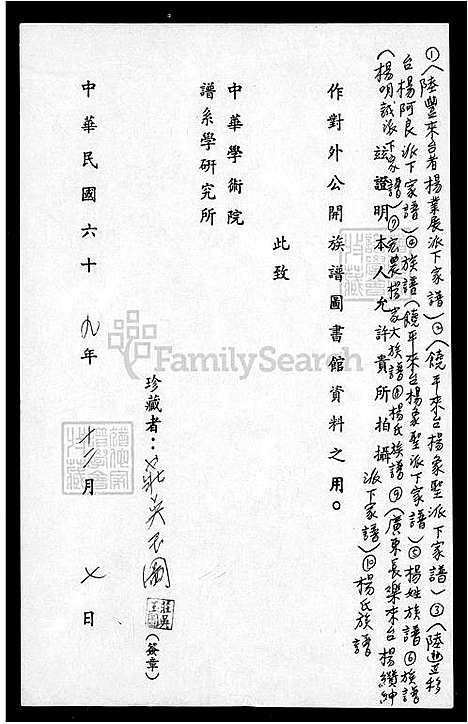 ①(陸豐來台者楊業展派下家譜)②(饒平來台楊象聖派下家譜)③(陸豐移
台楊阿良派下家譜)④族譜(饒平來台楊象聖派下家譜)⑤楊姓族譜⑥族譜
(楊明誠派下家譜)⑦宏農楊家大族譜⑧楊氏族譜⑨(廣東長樂來台楊纘紳
派下家譜)⑩楊氏族譜
茲證明本人允許貴所拍攝
作對外公開族譜圖書館資料之用。
此致
中華學術院
譜系學研究所
珍藏者:莊吳玉圖
(簽章)
中華民國六十九年十二月七日
FamilySearch